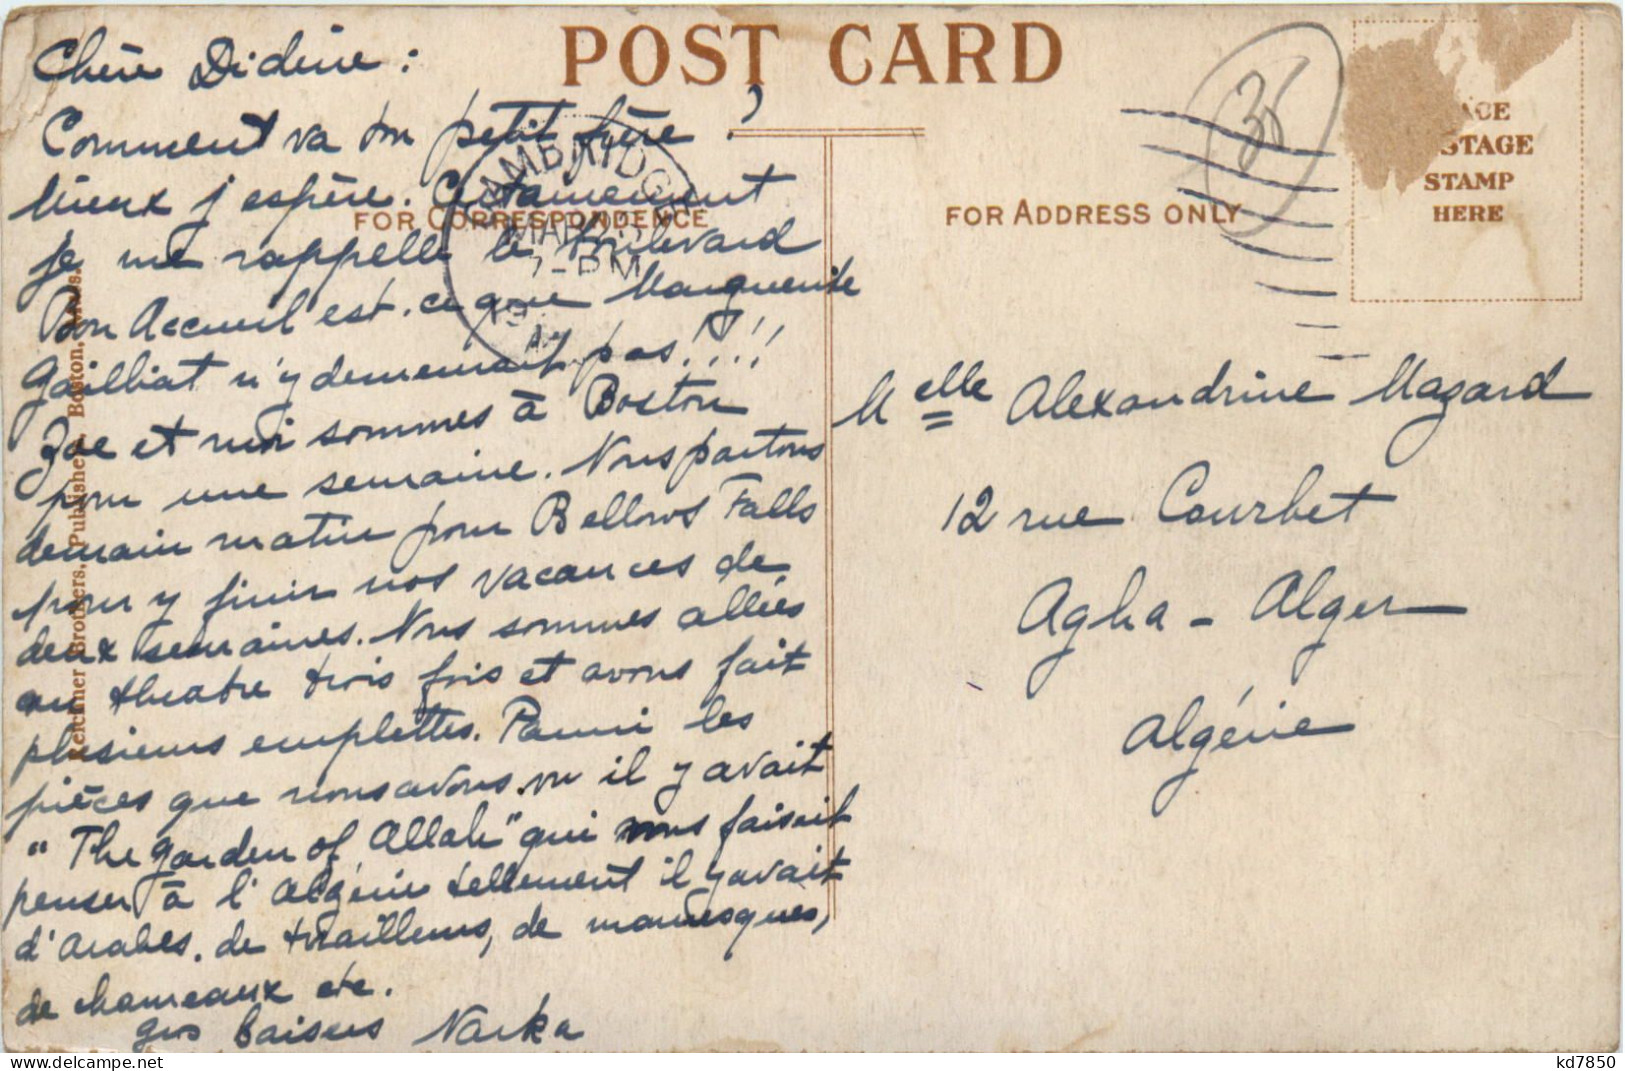 POST CARD
FOR CORRESPONDENCE
FOR ADDRESS ONLY
ACE
STAGE
STAMP
HERE
35
MAR
7-PM
Chère Didine :
Comment va ton petit frère ?
Mieux j'espère. Certainement
je me rappelle le Boulevard
Bon Accueil est-ce que Marguerite
Gailliat n'y demeurait pas!!!!
Zoe et moi sommes à Boston
pour une semaine. Nous partons
demain matin pour Bellows Falls
pour y finir nos vacances de
deux semaines. Nous sommes allées
au theatre trois fois et avons fait
plusieurs emplettes. Parmi les
pièces que nous avons vu il y avait
"The garden of Allah" qui nous faisait
penser à l'Algérie tellement il y avait
d'Arabes, de tirailleurs, de mauresques,
de chameaux etc.
gros baisers Narka
Brothers, Publishers, Boston, Mass.
Melle Alexandrine Mazard
12 rue Courbet
Agha - Alger
Algérie
kd7850